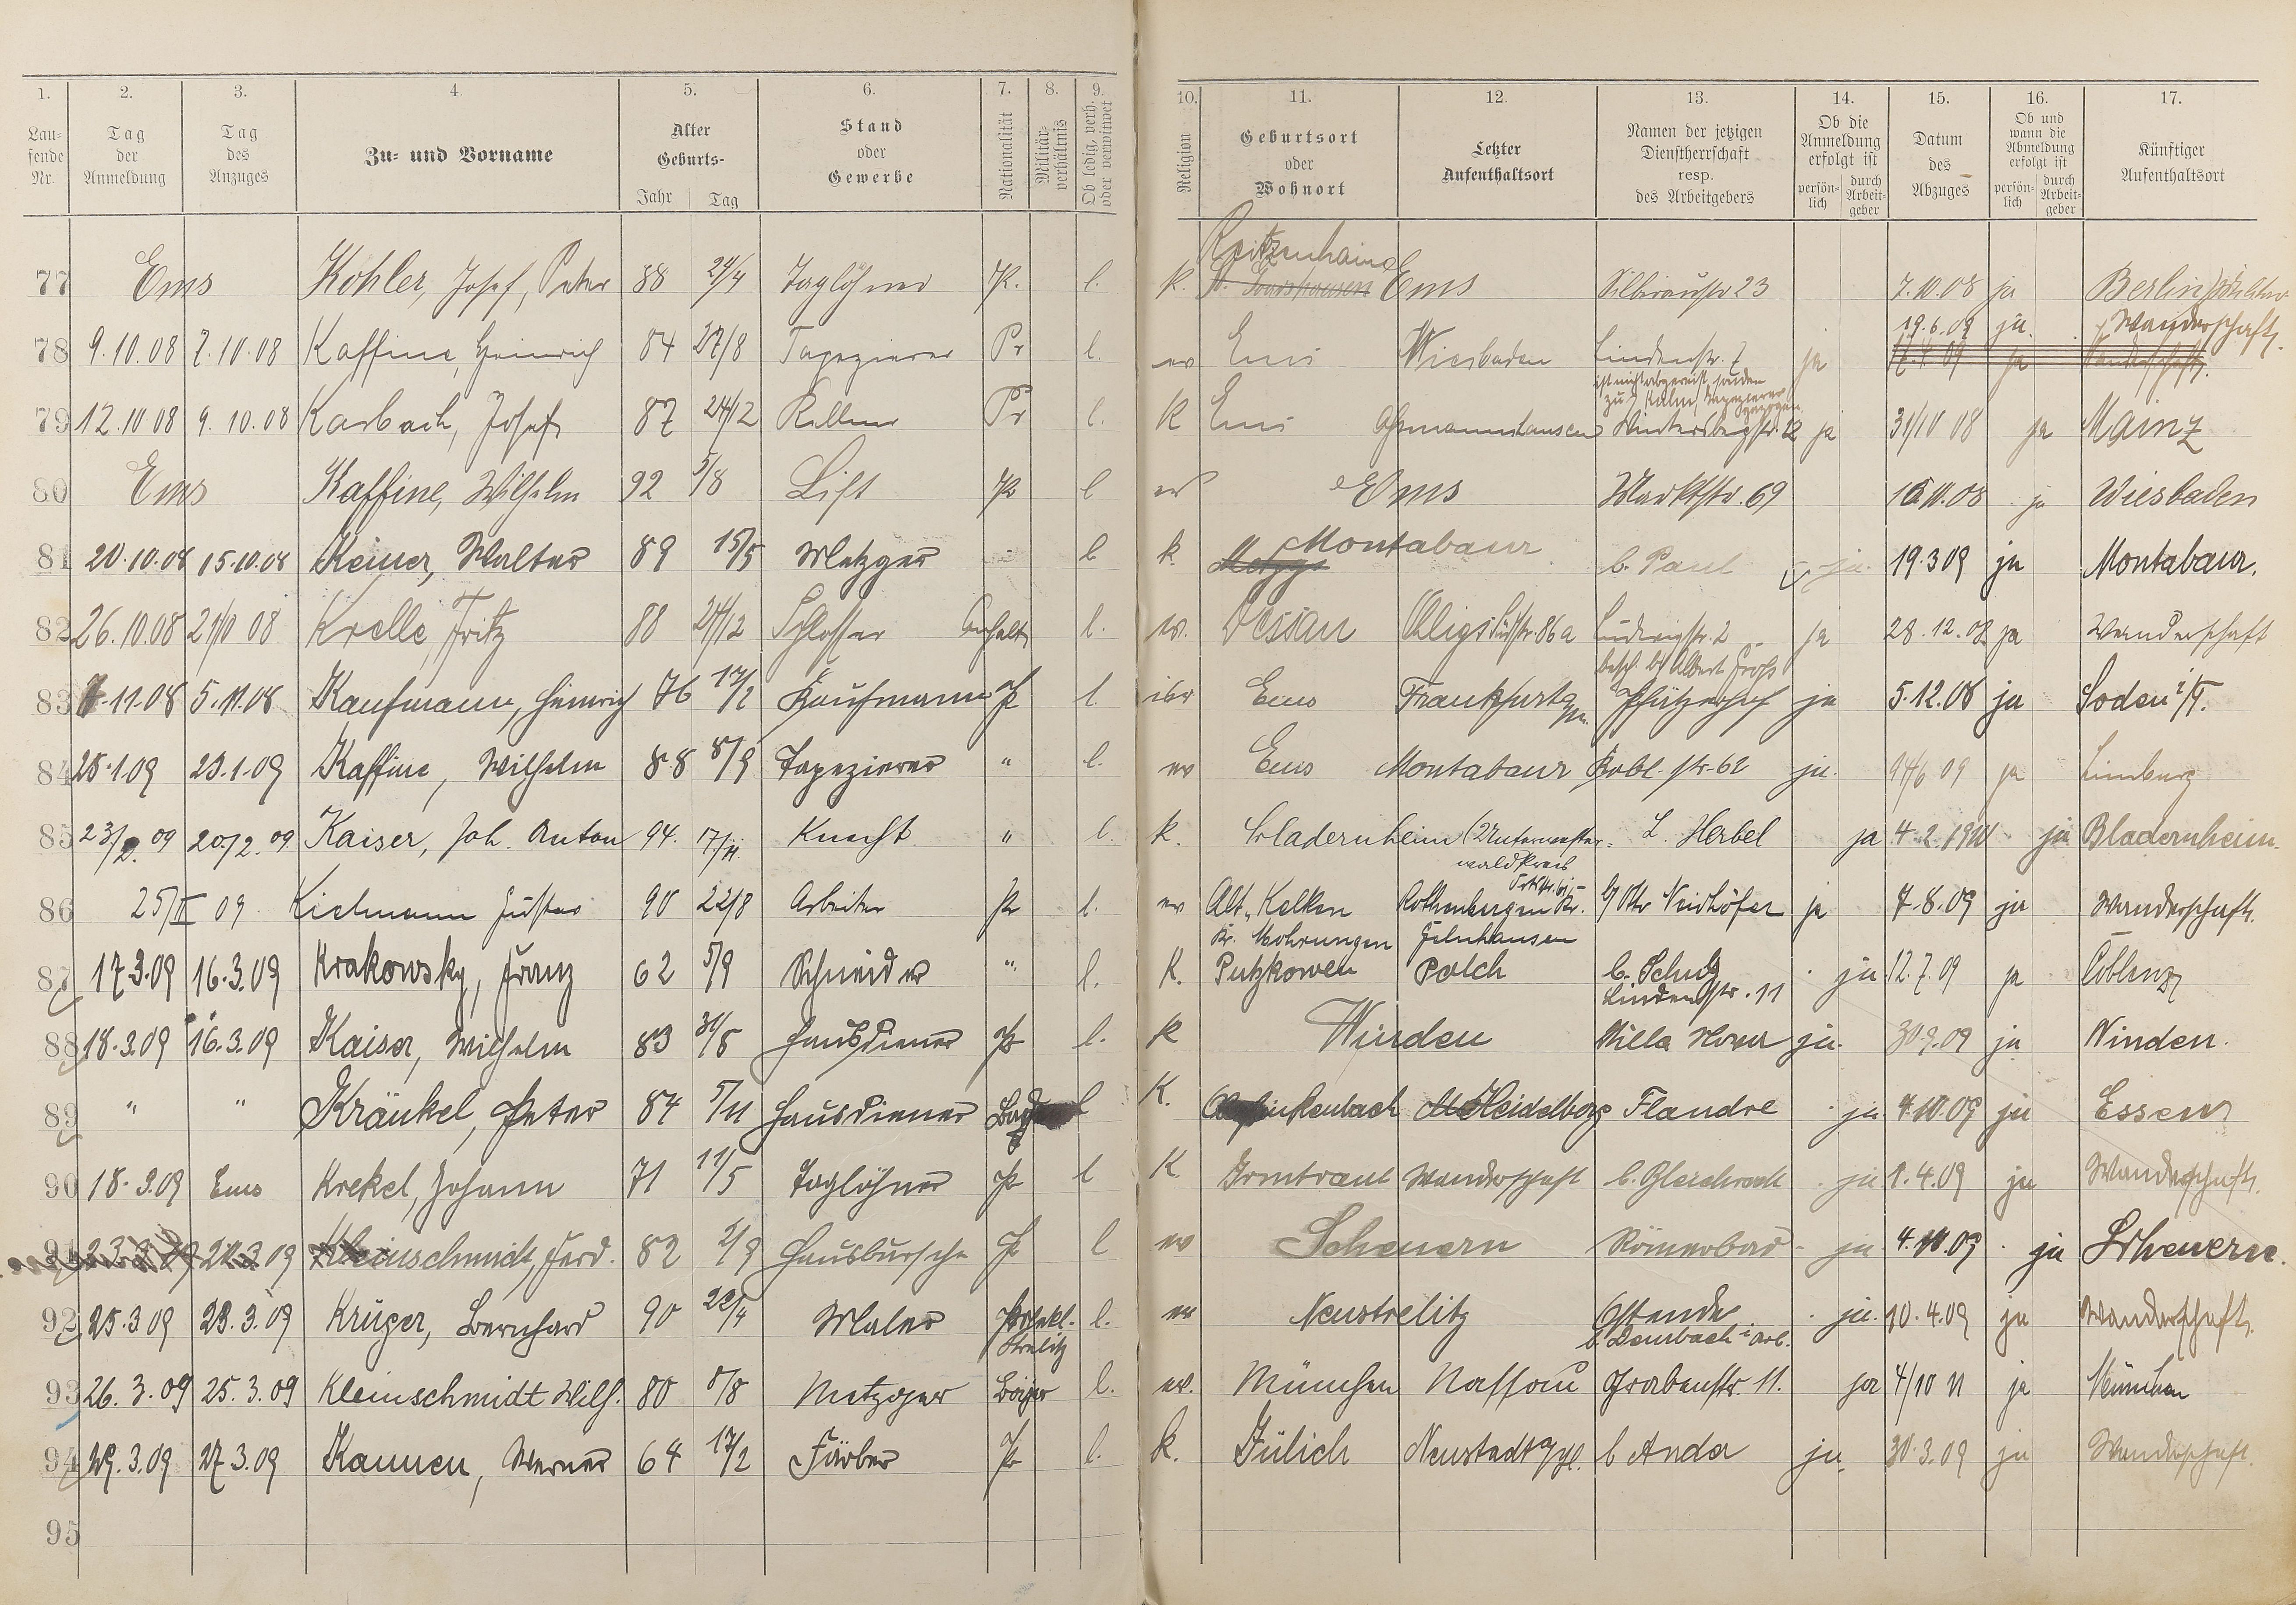 1. 2. 3. 4. 5. 6. 7. 8. 9. 10. 11. 12. 13. 14. 15. 16. 17.
Lau-
fende
Nr.
Tag
der
Anmeldung
Tag
des
Anzuges
Zu- und Vorname
Alter
Geburts-
Jahr Tag
Stand
oder
Gewerbe
Nationalität
Militär-
verhältnis
Ob ledig, verh.
oder verwitwet
Religion
Geburtsort
oder
Wohnort
Letzter
Aufenthaltsort
Namen der jetzigen
Dienstherrschaft
resp.
des Arbeitgebers
Ob die
Anmeldung
erfolgt ist
persön-
lich
durch
Arbeit-
geber
Datum
des
Abzuges
Ob und
wann die
Abmeldung
erfolgt ist
persön-
lich
durch
Arbeit-
geber
Künftiger
Aufenthaltsort
Reitzenhain
77 Ems Kohler, Josef, Peter 88 24/4 Taglöhner Pr. l. k. St. Goarshausen Ems Silberaustr 23 7.10.08 ja Berlin
19.6.09 ja. Wanderschaft.
78 9.10.08 7.10.08 Kaffine, Heinrich 84 27/8 Tapezierer Pr l. ev Ems Wiesbaden Lindenstr. 7 ja 12.4.09 ja Wanderschaft.
ist nicht abgereist, sonder
zu Kalm, Tapezierer
gezogen
79 12.10.08 9.10.08 Karbach, Josef 87 24/12 Kellner Pr l. K Ems Aßmannshausen Wintersbergstr. 12 ja 31/10 08 ja Mainz
80 Ems Kaffine, Wilhelm 92 5/8 Lift Pr l ev Ems Marktstr. 69 10.08 ja Wiesbaden
81 20.10.08 15.10.08 Keiner, Walter 89 15/5 Metzger l k. Montabaur b. Paul ja. 19.3.09 ja Montabaur.
82 26.10.08 21/10 08 Krelle, Fritz 88 24/12 Schlosser Anhalt l. ev. Dessau Ohligs Südstr. 86a Ludwigstr. 2 ja 28.12.08 ja Wanderschaft
besch. bei Albert
83 7.11.08 5.11.08 Kaufmann, Heinrich 76 17/2 Kaufmann Pr l isr Ems Frankfurt a/M. Pfützerhof ja 5.12.08 ja Soden i/T.
84 25.1.09 23.1.09 Kaffine, Wilhelm 88 8/9 Tapezierer " l. ev Ems Montabaur Kobl. str. 62 ja. 09 ja Limburg
85 23/2.09 20/2.09 Kaiser, Joh. Anton 94. 17/11. Knecht " l. k. Bladernheim (Unterwester-
waldkreis L. Herbel ja 4.2.1911 ja Bladernheim.
86 25/II 09 Kielmann Gustav 90 22/8 Arbeiter Pr l. ev Alt-Kelken Rothenbergen Kr. b/ Otto Neidhöfer ja 7.8.09 ja Wanderschaft.
Kr. Mohrungen Gelnhausen
87 17.3.09 16.3.09 Krakowsky, Franz 62 5/9 Schneider " l. K. Putzkowen Polch b. Schulz ja 12.7.09 ja Coblenz
Lindenstr. 11
88 18.3.09 16.3.09 Kaiser, Wilhelm 83 31/8 Hausdiener Pr l. K Winden Villa ja. 30.9.09 ja Winden.
89 " " Kränkel, Peter 84 5/11 Hausdiener l K. Heidelberg Flandre ja 4.10.09 ja Essen
90 18.3.09 Ems Krekel, Johann 71 11/5 Taglöhner Pr l K Irmtraut Wanderschaft ja 1.4.09 ja Wanderschaft.
91 23.3.09 21.3.09 Kleinschmidt, Ferd. 82 2/9 Hausbursche Pr l ev Scheuern Römerbad ja 4.10.09 ja Scheuern.
92 25.3.09 23.3.09 Krüger, Bernhard 90 22/4 Maler Mekl. l. ev Neustrelitz Ostende ja. 10.4.09 ja Wanderschaft.
Strelitz b. Denbach i arb.
93 26.3.09 25.3.09 Kleinschmidt Wilh. 80 8/8 Metzger Baier l. ev. München Nassau Grabenstr. 11. ja 4/10 11 ja München
94 29.3.09 27.3.09 Kannen, Werner 64 17/2 Färber Pr l. k. Jülich Neustadt b Anda ja 30.3.09 ja Wanderschaft.
95